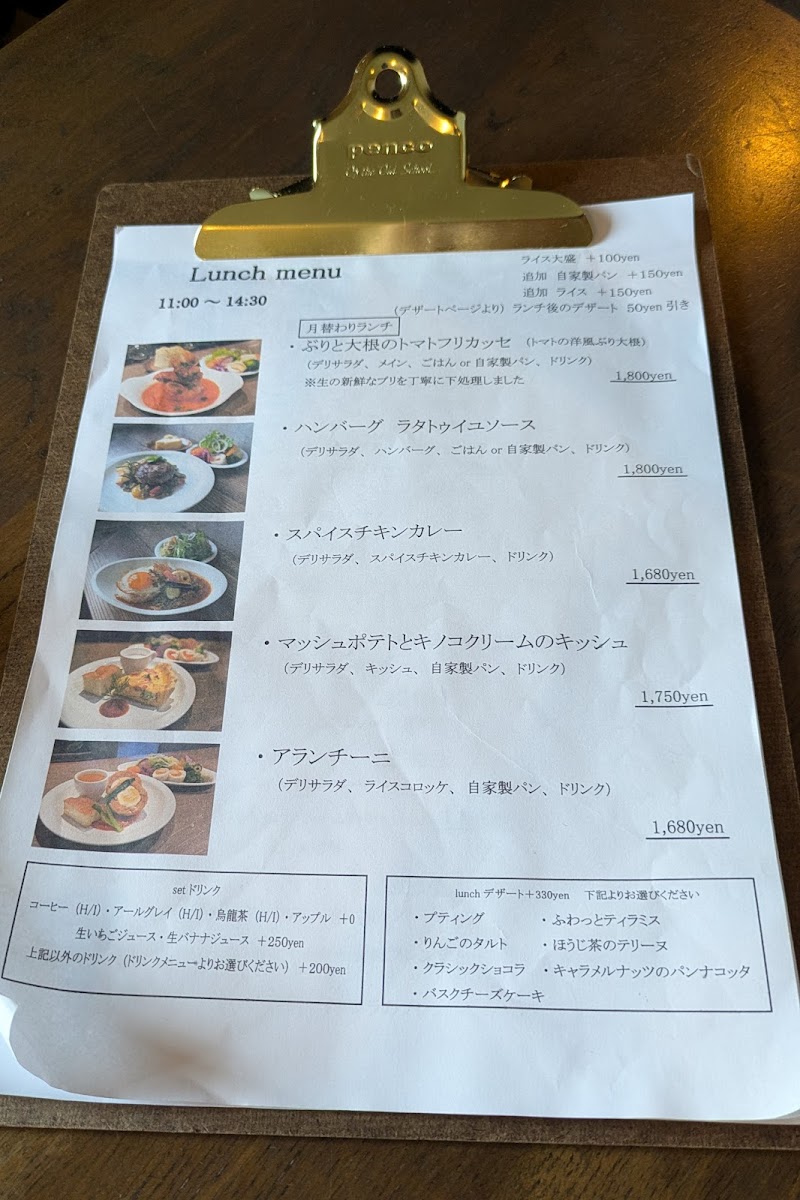 penco
Of the Old School.
Lunch menu
11:00 ～ 14:30
ライス大盛 +100yen
追加 自家製パン +150yen
追加 ライス +150yen
(デザートページより) ランチ後のデザート 50yen 引き
月替わりランチ
・ぶりと大根のトマトフリカッセ (トマトの洋風ぶり大根)
(デリサラダ、メイン、ごはん or 自家製パン、ドリンク)
※生の新鮮なブリを丁寧に下処理しました
1,800yen
・ハンバーグ ラタトゥイユソース
(デリサラダ、ハンバーグ、ごはん or 自家製パン、ドリンク)
1,800yen
・スパイスチキンカレー
(デリサラダ、スパイスチキンカレー、ドリンク)
1,680yen
・マッシュポテトとキノコクリームのキッシュ
(デリサラダ、キッシュ、自家製パン、ドリンク)
1,750yen
・アランチーニ
(デリサラダ、ライスコロッケ、自家製パン、ドリンク)
1,680yen
set ドリンク
コーヒー (H/I)・アールグレイ (H/I)・烏龍茶 (H/I)・アップル +0
生いちごジュース・生バナナジュース +250yen
上記以外のドリンク (ドリンクメニューよりお選びください) +200yen
lunch デザート+330yen 下記よりお選びください
・プティング ・ふわっとティラミス
・りんごのタルト ・ほうじ茶のテリーヌ
・クラシックショコラ ・キャラメルナッツのパンナコッタ
・バスクチーズケーキ